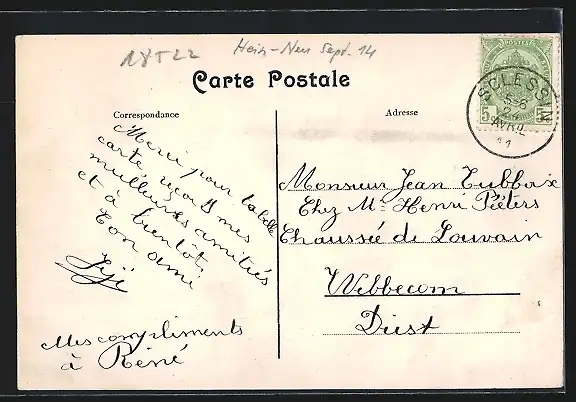 18522
Hein-Neu Sept. 14
Carte Postale
Correspondance
Adresse
POSTES
5 5
SCLESSIN
5-6
24
AVRIL
11
Merci pour ta belle
carte reçois mes
meilleures amitiés
et à bientôt,
Ton ami
Jéjé
Mes compliments
à Réné
Monsieur Jean Tubbax
Chez Mr Henri Peeters
Chaussée de Louvain
Webbecom
Diest